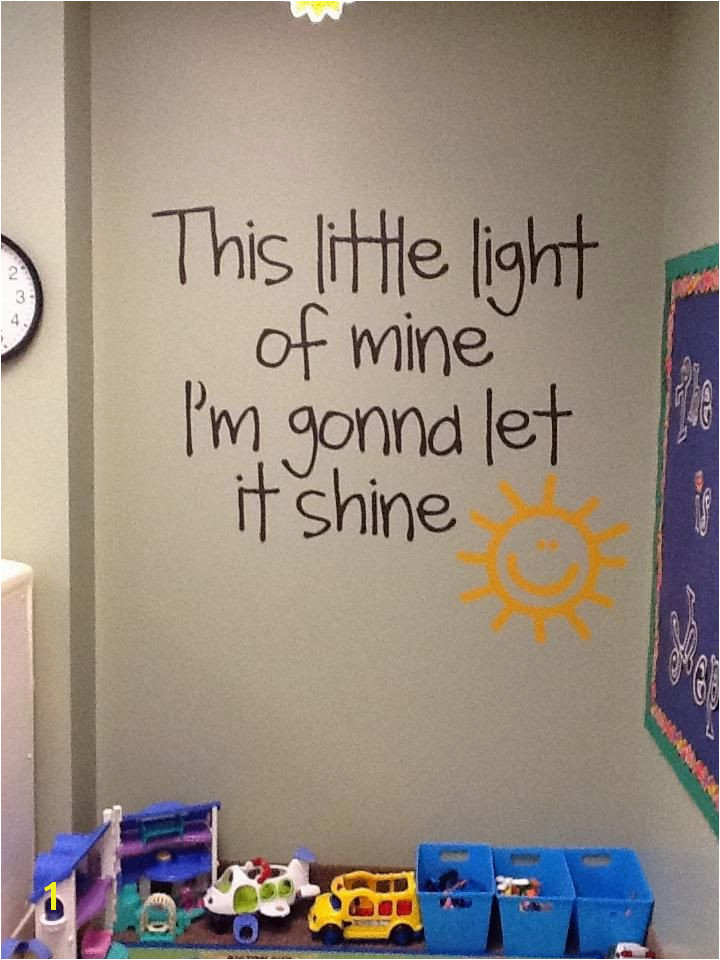 This little light
of mine
I'm gonna let
it shine
2
3
4
The
is
1